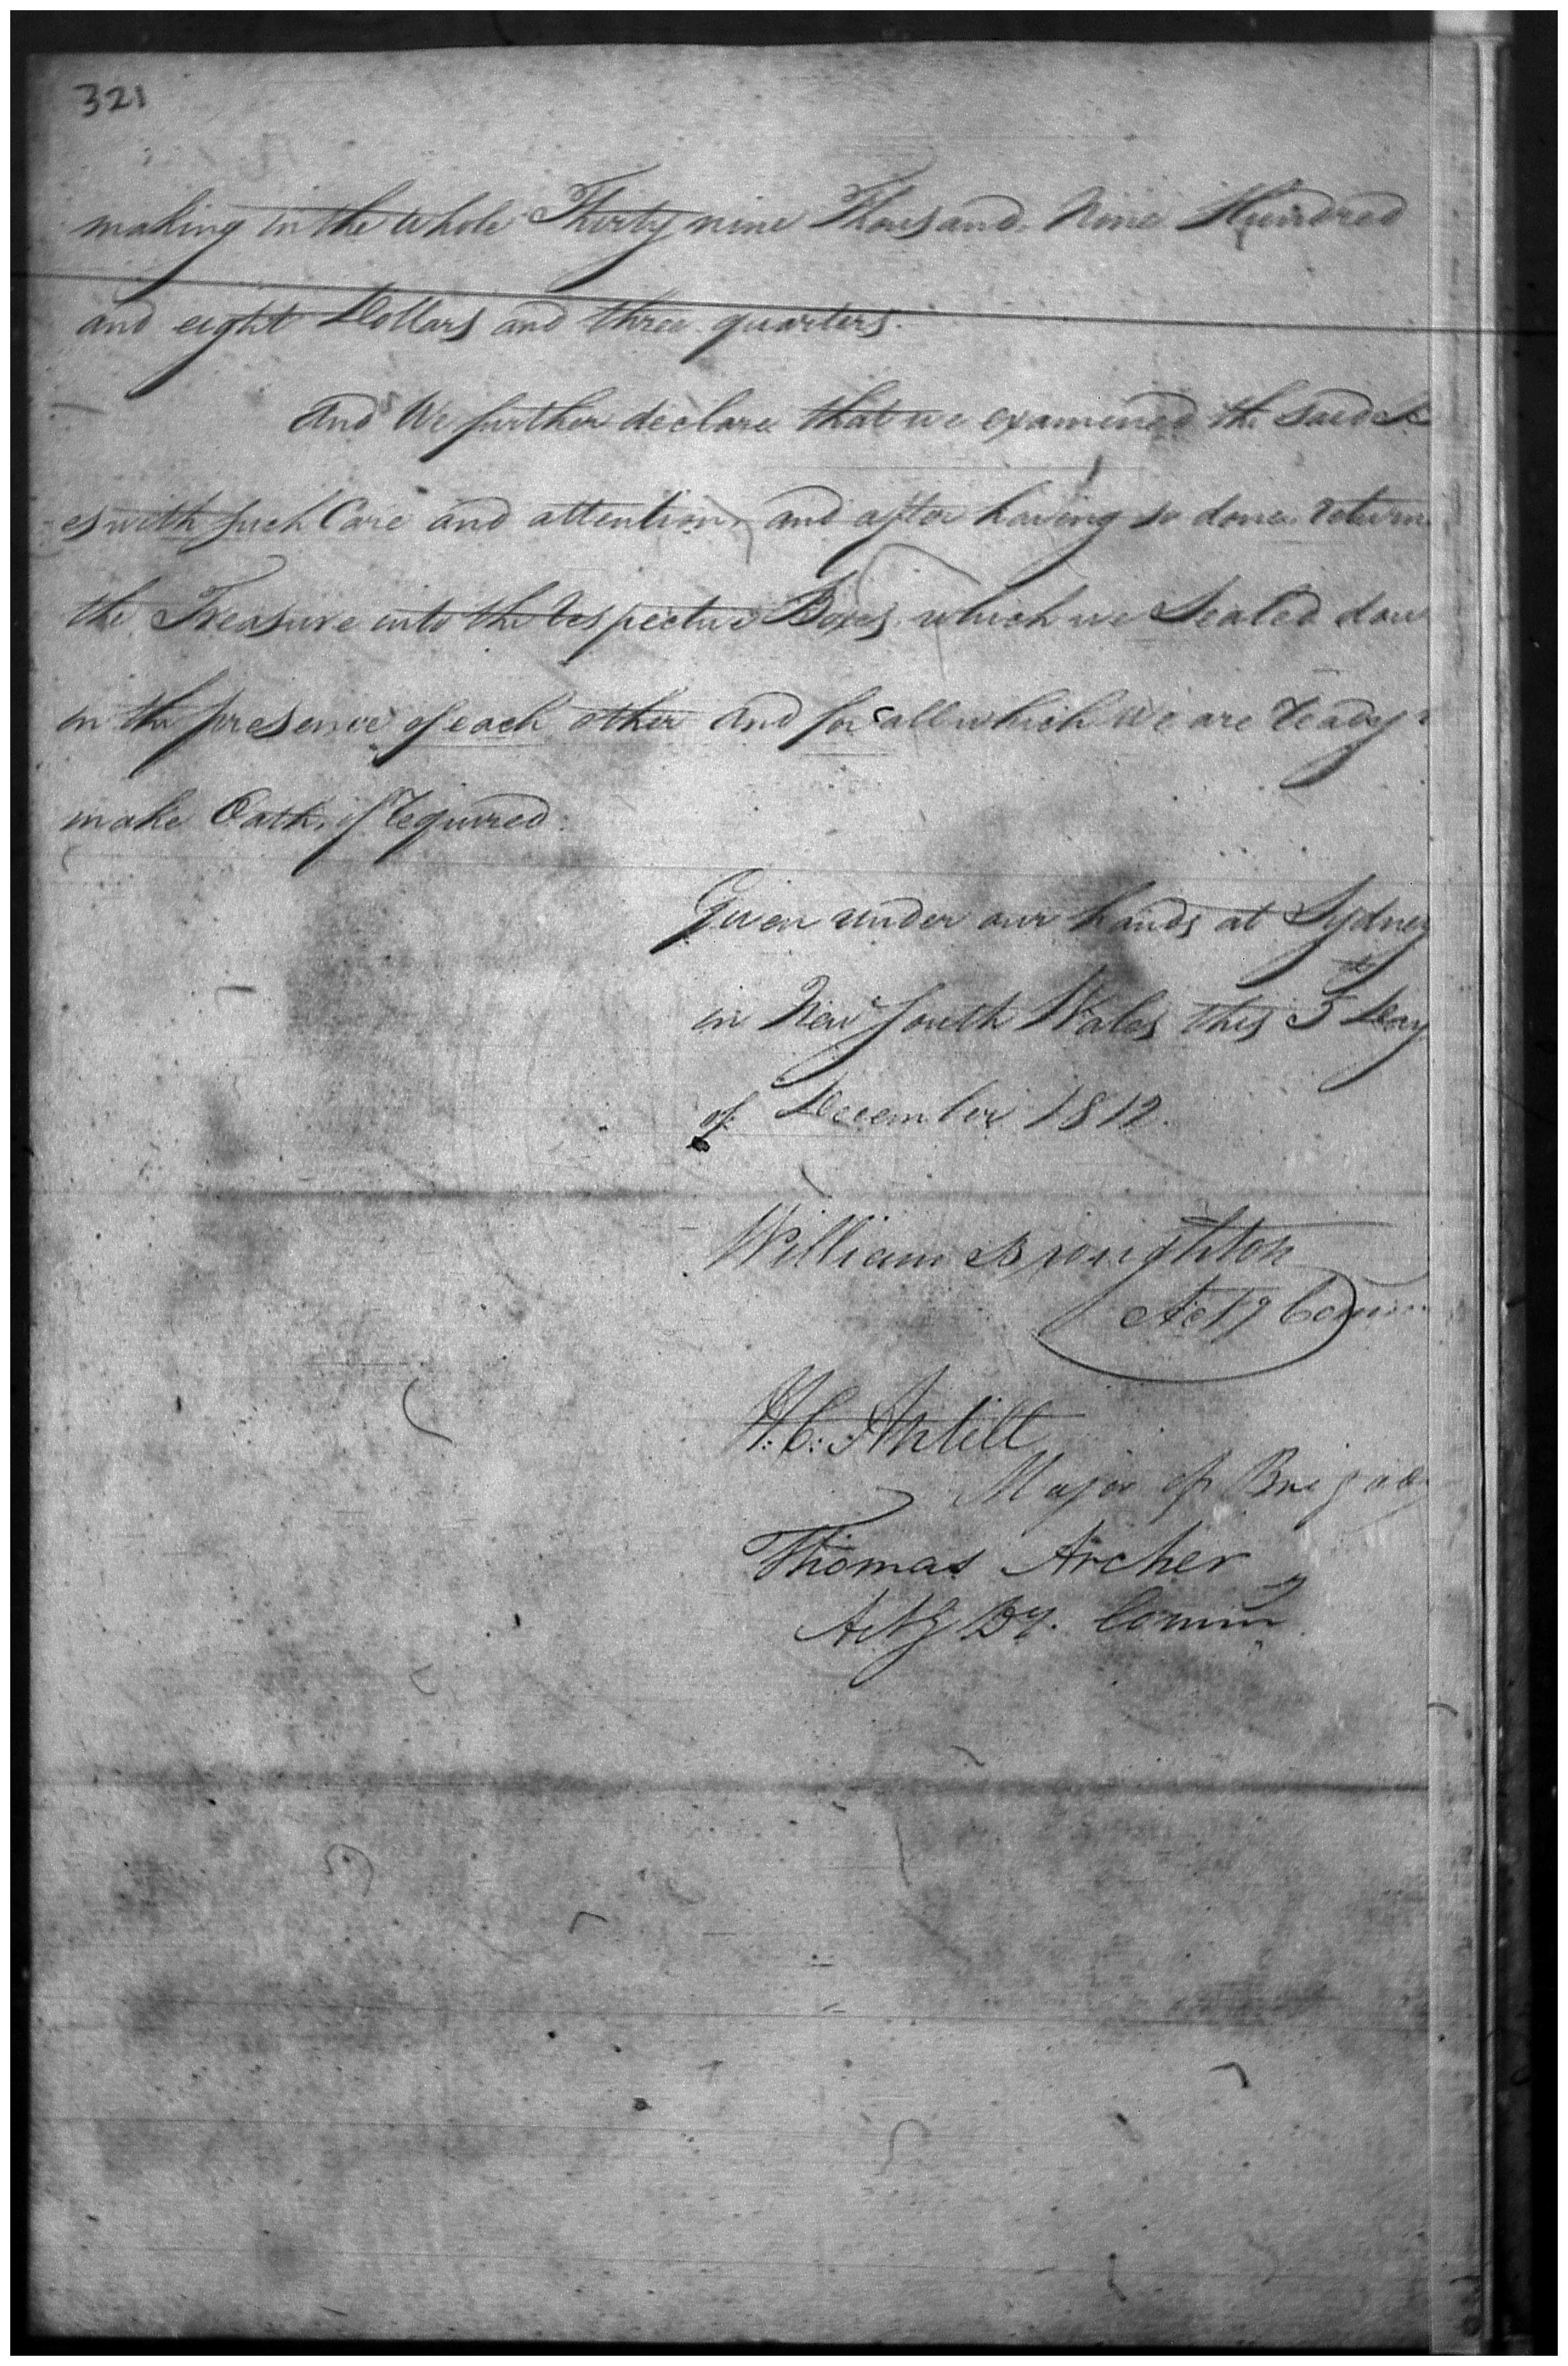 321
making in the Whole Thirty nine Thousand Nine Hundred
and eight Dollars and three quarters.
And We further declare that we examined the said
es with such Care and attention, and after having so done return
the Treasure into the respective Boxes, which we Sealed dow
in the presence of each other and for all which We are ready
make Oath, if required.
Given under our hands at Sydney
in New South Wales this 5th Day
of December 1812.
William Broughton
Actg Comm
H. C. Antill
Major of Brigade
Thomas Archer
Actg Dy. Commy